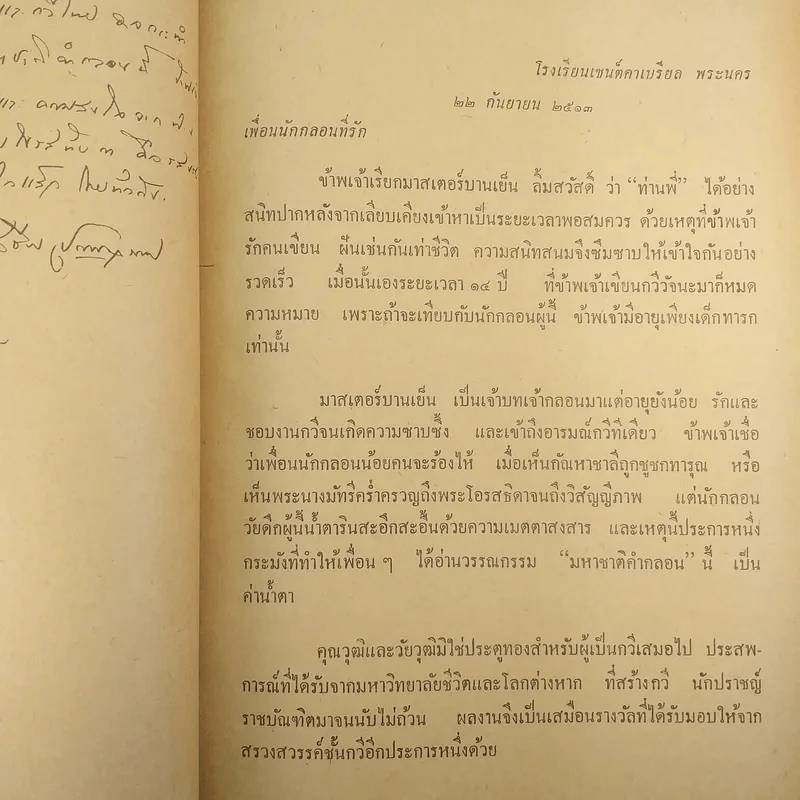 โรงเรียนเซนต์คาเบรียล พระนคร
๒๒ กันยายน ๒๕๑๓
เพื่อนนักกลอนที่รัก
ข้าพเจ้าเรียกมาสเตอร์บานเย็น ลิ้มสวัสดิ์ ว่า “ท่านพี่” ได้อย่าง
สนิทปากหลังจากเลียบเคียงเข้าหาเป็นระยะเวลาพอสมควร ด้วยเหตุที่ข้าพเจ้า
รักคนเขียน ฝันเช่นกันเท่าชีวิต ความสนิทสนมจึงซึมซาบให้เข้าใจกันอย่าง
รวดเร็ว เมื่อนั้นเองระยะเวลา ๑๔ ปี ที่ข้าพเจ้าเขียนกวีวัจนะมาก็หมด
ความหมาย เพราะถ้าจะเทียบกับนักกลอนผู้นี้ ข้าพเจ้ามีอายุเพียงเด็กทารก
เท่านั้น
มาสเตอร์บานเย็น เป็นเจ้าบทเจ้ากลอนมาแต่อายุยังน้อย รักและ
ชอบงานกวีจนเกิดความซาบซึ้ง และเข้าถึงอารมณ์กวีทีเดียว ข้าพเจ้าเชื่อ
ว่าเพื่อนนักกลอนน้อยคนจะร้องไห้ เมื่อเห็นกัณหาชาลีถูกชูชกทารุณ หรือ
เห็นพระนางมัทรีคร่ำครวญถึงพระโอรสธิดาจนถึงวิสัญญีภาพ แต่นักกลอน
วัยดึกผู้นี้น้ำตารินสะอึกสะอื้นด้วยความเมตตาสงสาร และเหตุนี้ประการหนึ่ง
กระมังที่ทำให้เพื่อน ๆ ได้อ่านวรรณกรรม “มหาชาติคำกลอน” นี้ เป็น
ค่าน้ำตา
คุณวุฒิและวัยวุฒิมิใช่ประตูทองสำหรับผู้เป็นกวีเสมอไป ประสพ-
การณ์ที่ได้รับจากมหาวิทยาลัยชีวิตและโลกต่างหาก ที่สร้างกวี นักปราชญ์
ราชบัณฑิตมาจนนับไม่ถ้วน ผลงานจึงเป็นเสมือนรางวัลที่ได้รับมอบให้จาก
สรวงสวรรค์ชั้นกวีอีกประการหนึ่งด้วย